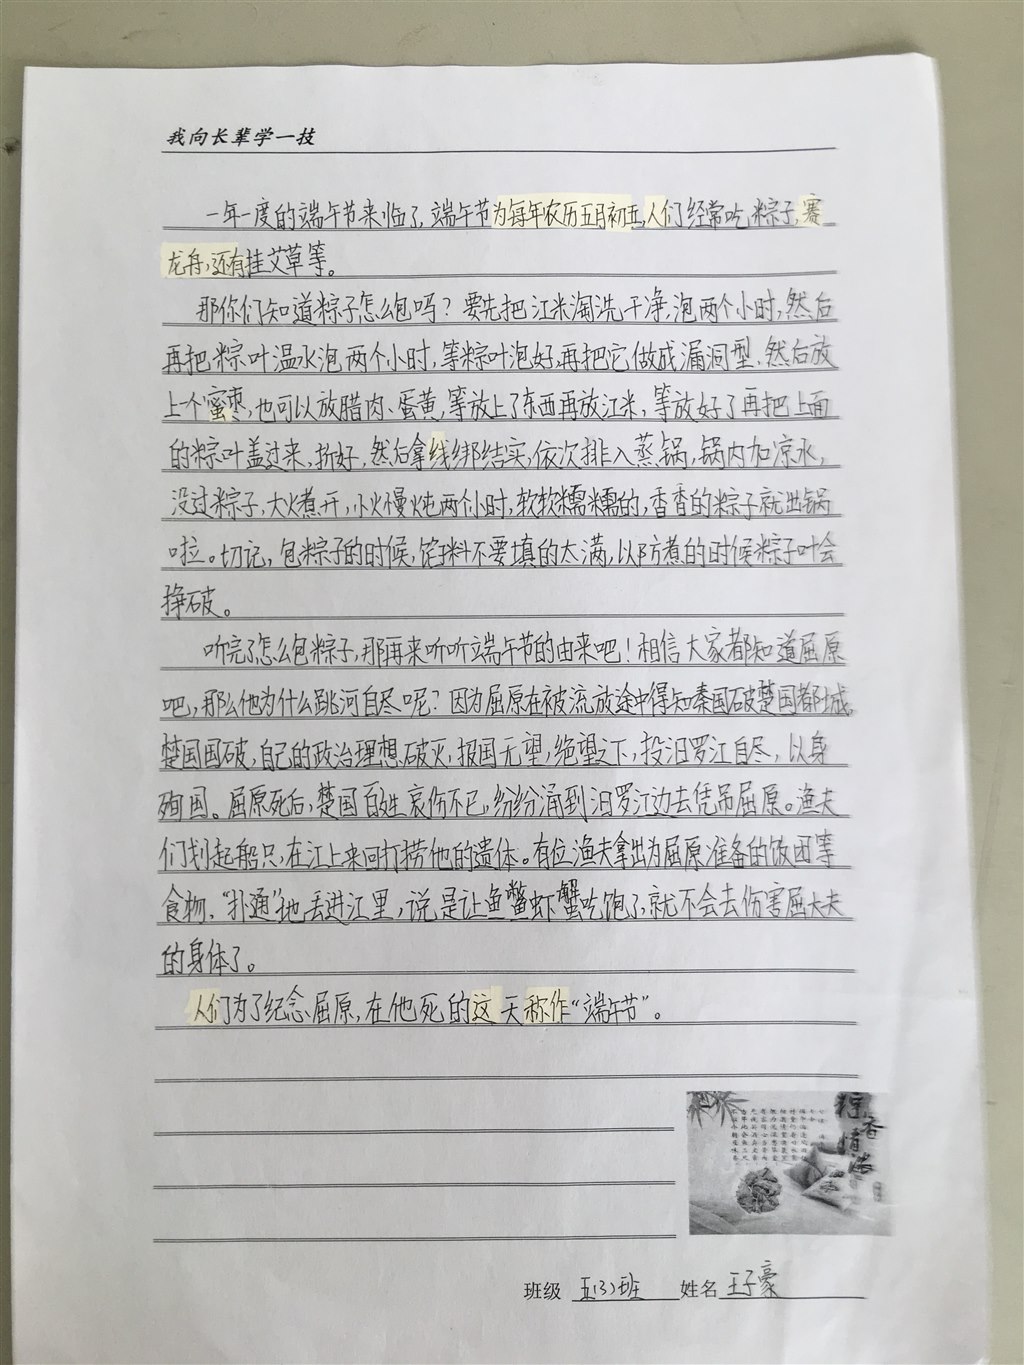 我向长辈学一技
一年一度的端午节来临了,端午节为每年农历五月初五,人们经常吃粽子,赛
龙舟,还有挂艾草等。
那你们知道粽子怎么包吗？要先把江米淘洗干净,泡两个小时,然后
再把粽叶温水泡两个小时,等粽叶泡好,再把它做成漏洞型,然后放
上个蜜枣,也可以放腊肉、蛋黄,等放上了东西再放江米,等放好了再把上面
的粽叶盖过来,折好,然后拿线绑结实,依次排入蒸锅,锅内加凉水,
没过粽子,大火煮开,小火慢炖两个小时,软软糯糯的,香香的粽子就出锅
啦。切记,包粽子的时候,馅料不要填的太满,以防煮的时候粽子叶会
挣破。
听完了怎么包粽子,那再来听听端午节的由来吧！相信大家都知道屈原
吧,那么他为什么跳河自尽呢？因为屈原在被流放途中得知秦国破楚国都城,
楚国国破,自己的政治理想破灭,报国无望,绝望之下,投汨罗江自尽,以身
殉国。屈原死后,楚国百姓哀伤不已,纷纷涌到汨罗江边去凭吊屈原。渔夫
们划起船只,在江上来回打捞他的遗体。有位渔夫拿出为屈原准备的饭团等
食物,“扑通”地丢进江里,说是让鱼鳖虾蟹吃饱了,就不会去伤害屈大夫
的身体了。
人们为了纪念屈原,在他死的这天称作“端午节”。
粽香情浓
班级 五(3)班 姓名 王子豪